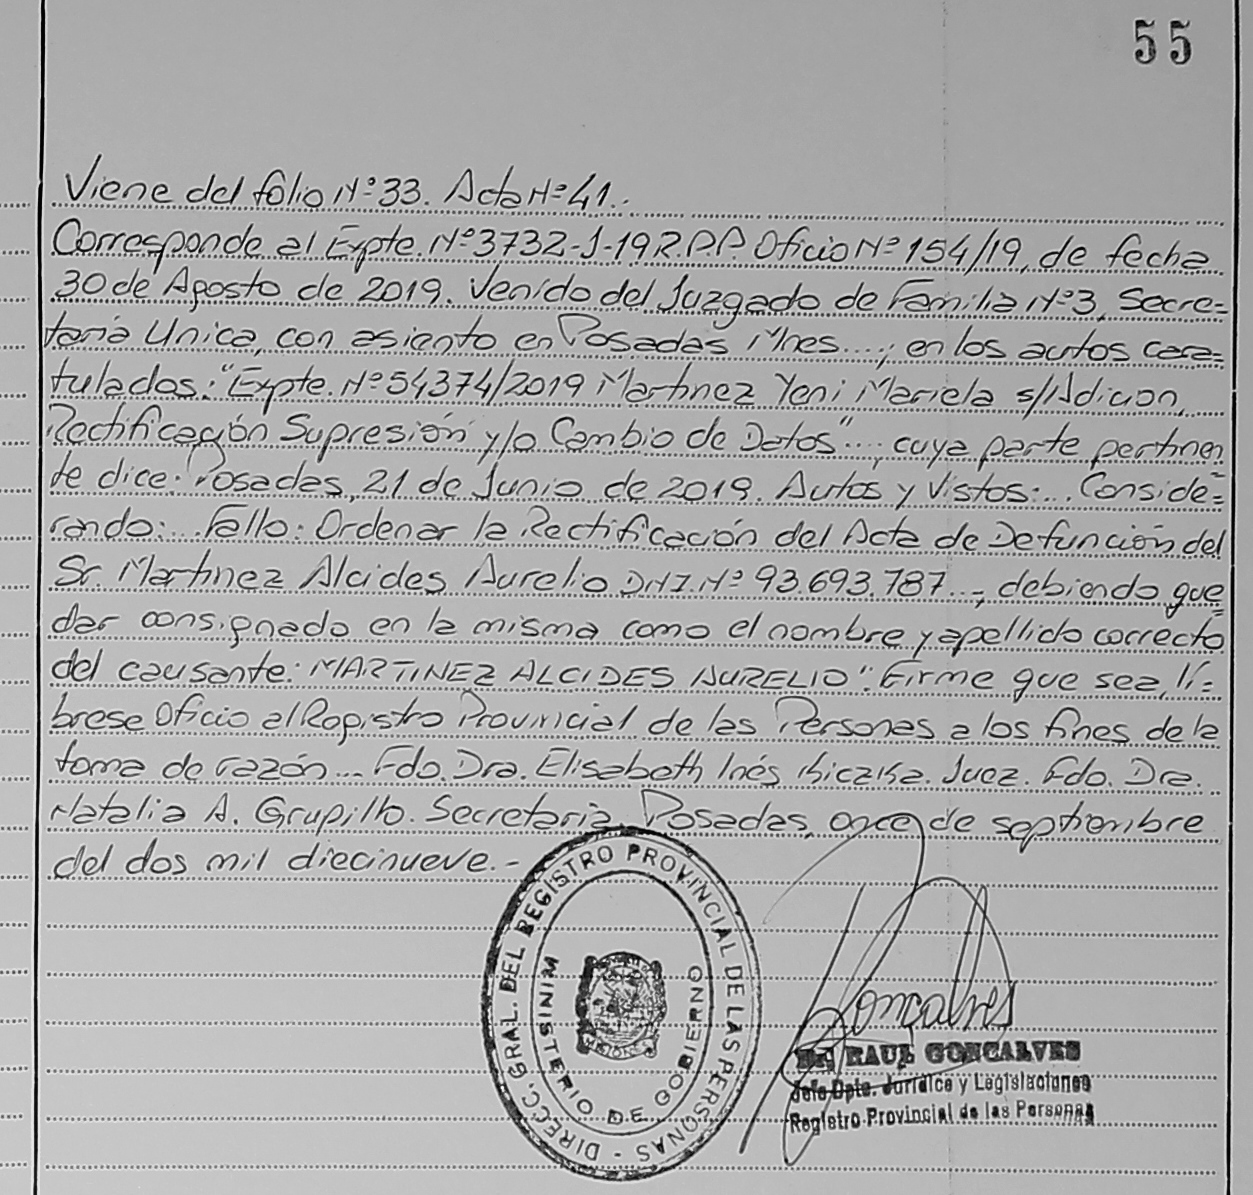 55
Viene del folio Nº 33. Acta Nº 41.
Corresponde al Expte. Nº 3732-J-19 R.P.P. Oficio Nº 154/19, de fecha
30 de Agosto de 2019. Venido del Juzgado de Familia Nº 3, Secre=
taría Unica, con asiento en Posadas Mnes...; en los autos cara=
tulados: "Expte. Nº 54374/2019 Martinez Yeni Mariela s/Adicion,
Rectificación Supresión y/o Cambio de Datos"..., cuya parte pertinen
te dice: Posadas, 21 de Junio de 2019. Autos y Vistos:... Conside=
rando:... Fallo: Ordenar la Rectificación del Acta de Defunción del
Sr. Martinez Alcides Aurelio DNI. Nº 93.693.787..., debiendo que
dar consignado en la misma como el nombre y apellido correcto
del causante: MARTINEZ ALCIDES AURELIO". Firme que sea, lí=
brese Oficio al Registro Provincial de las Personas a los fines de la
toma de razón... Fdo. Dra. Elisabeth Inés Juez. Fdo. Dra.
Natalia A. Secretaria. Posadas, once de septiembre
del dos mil diecinueve.-
DIRECC. GRAL. DEL REGISTRO PROVINCIAL DE LAS PERSONAS -
MINISTERIO DE GOBIERNO
MISIONES
Goncalves
Dr. RAUL GONCALVES
Jefe Dpto. Jurídica y Legislaciones
Registro Provincial de las Personas